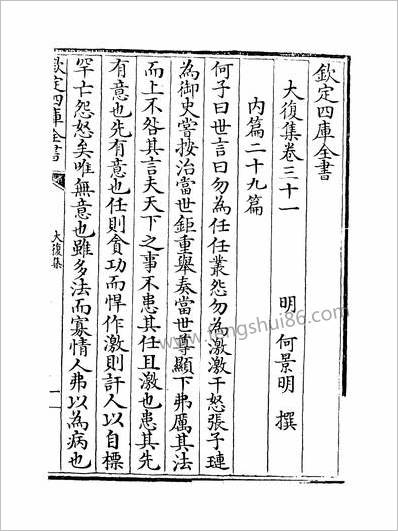 欽定四庫全書
大復集卷三十一
明 何景明 撰
內篇二十九篇
何子曰世言曰勿為任任叢怨勿為激激干怒張子璉
為御史嘗按治當世鉅重舉奏當世尊顯下弗厲其法
而上不咎其言夫天下之事不患其任且激也患其先
有意也先有意也任則貪功而悍作激則訐人以自標
罕亡怨怒矣唯無意也雖多法而寡情人弗以為病也
欽定四庫全書
大復集
一
www.fengshui86.com